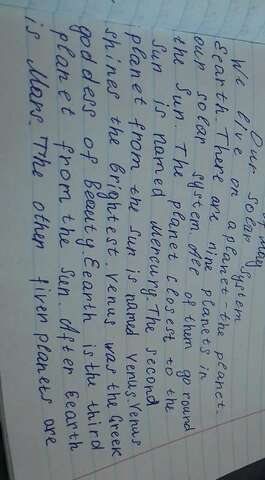 of May
Our solar system
We live on a planet: the planet.
Eearth. There are nine planets in
our solar system. All of them go round
the Sun. The planet closest to the
Sun is named Mercury. The second
planet from the Sun is named Venus. Venus
shines the brightest. Venus was the Greek
goddess of Beauty. Eearth is the third
planet from the Sun. After Eearth
is Mars. The other fiven planets are